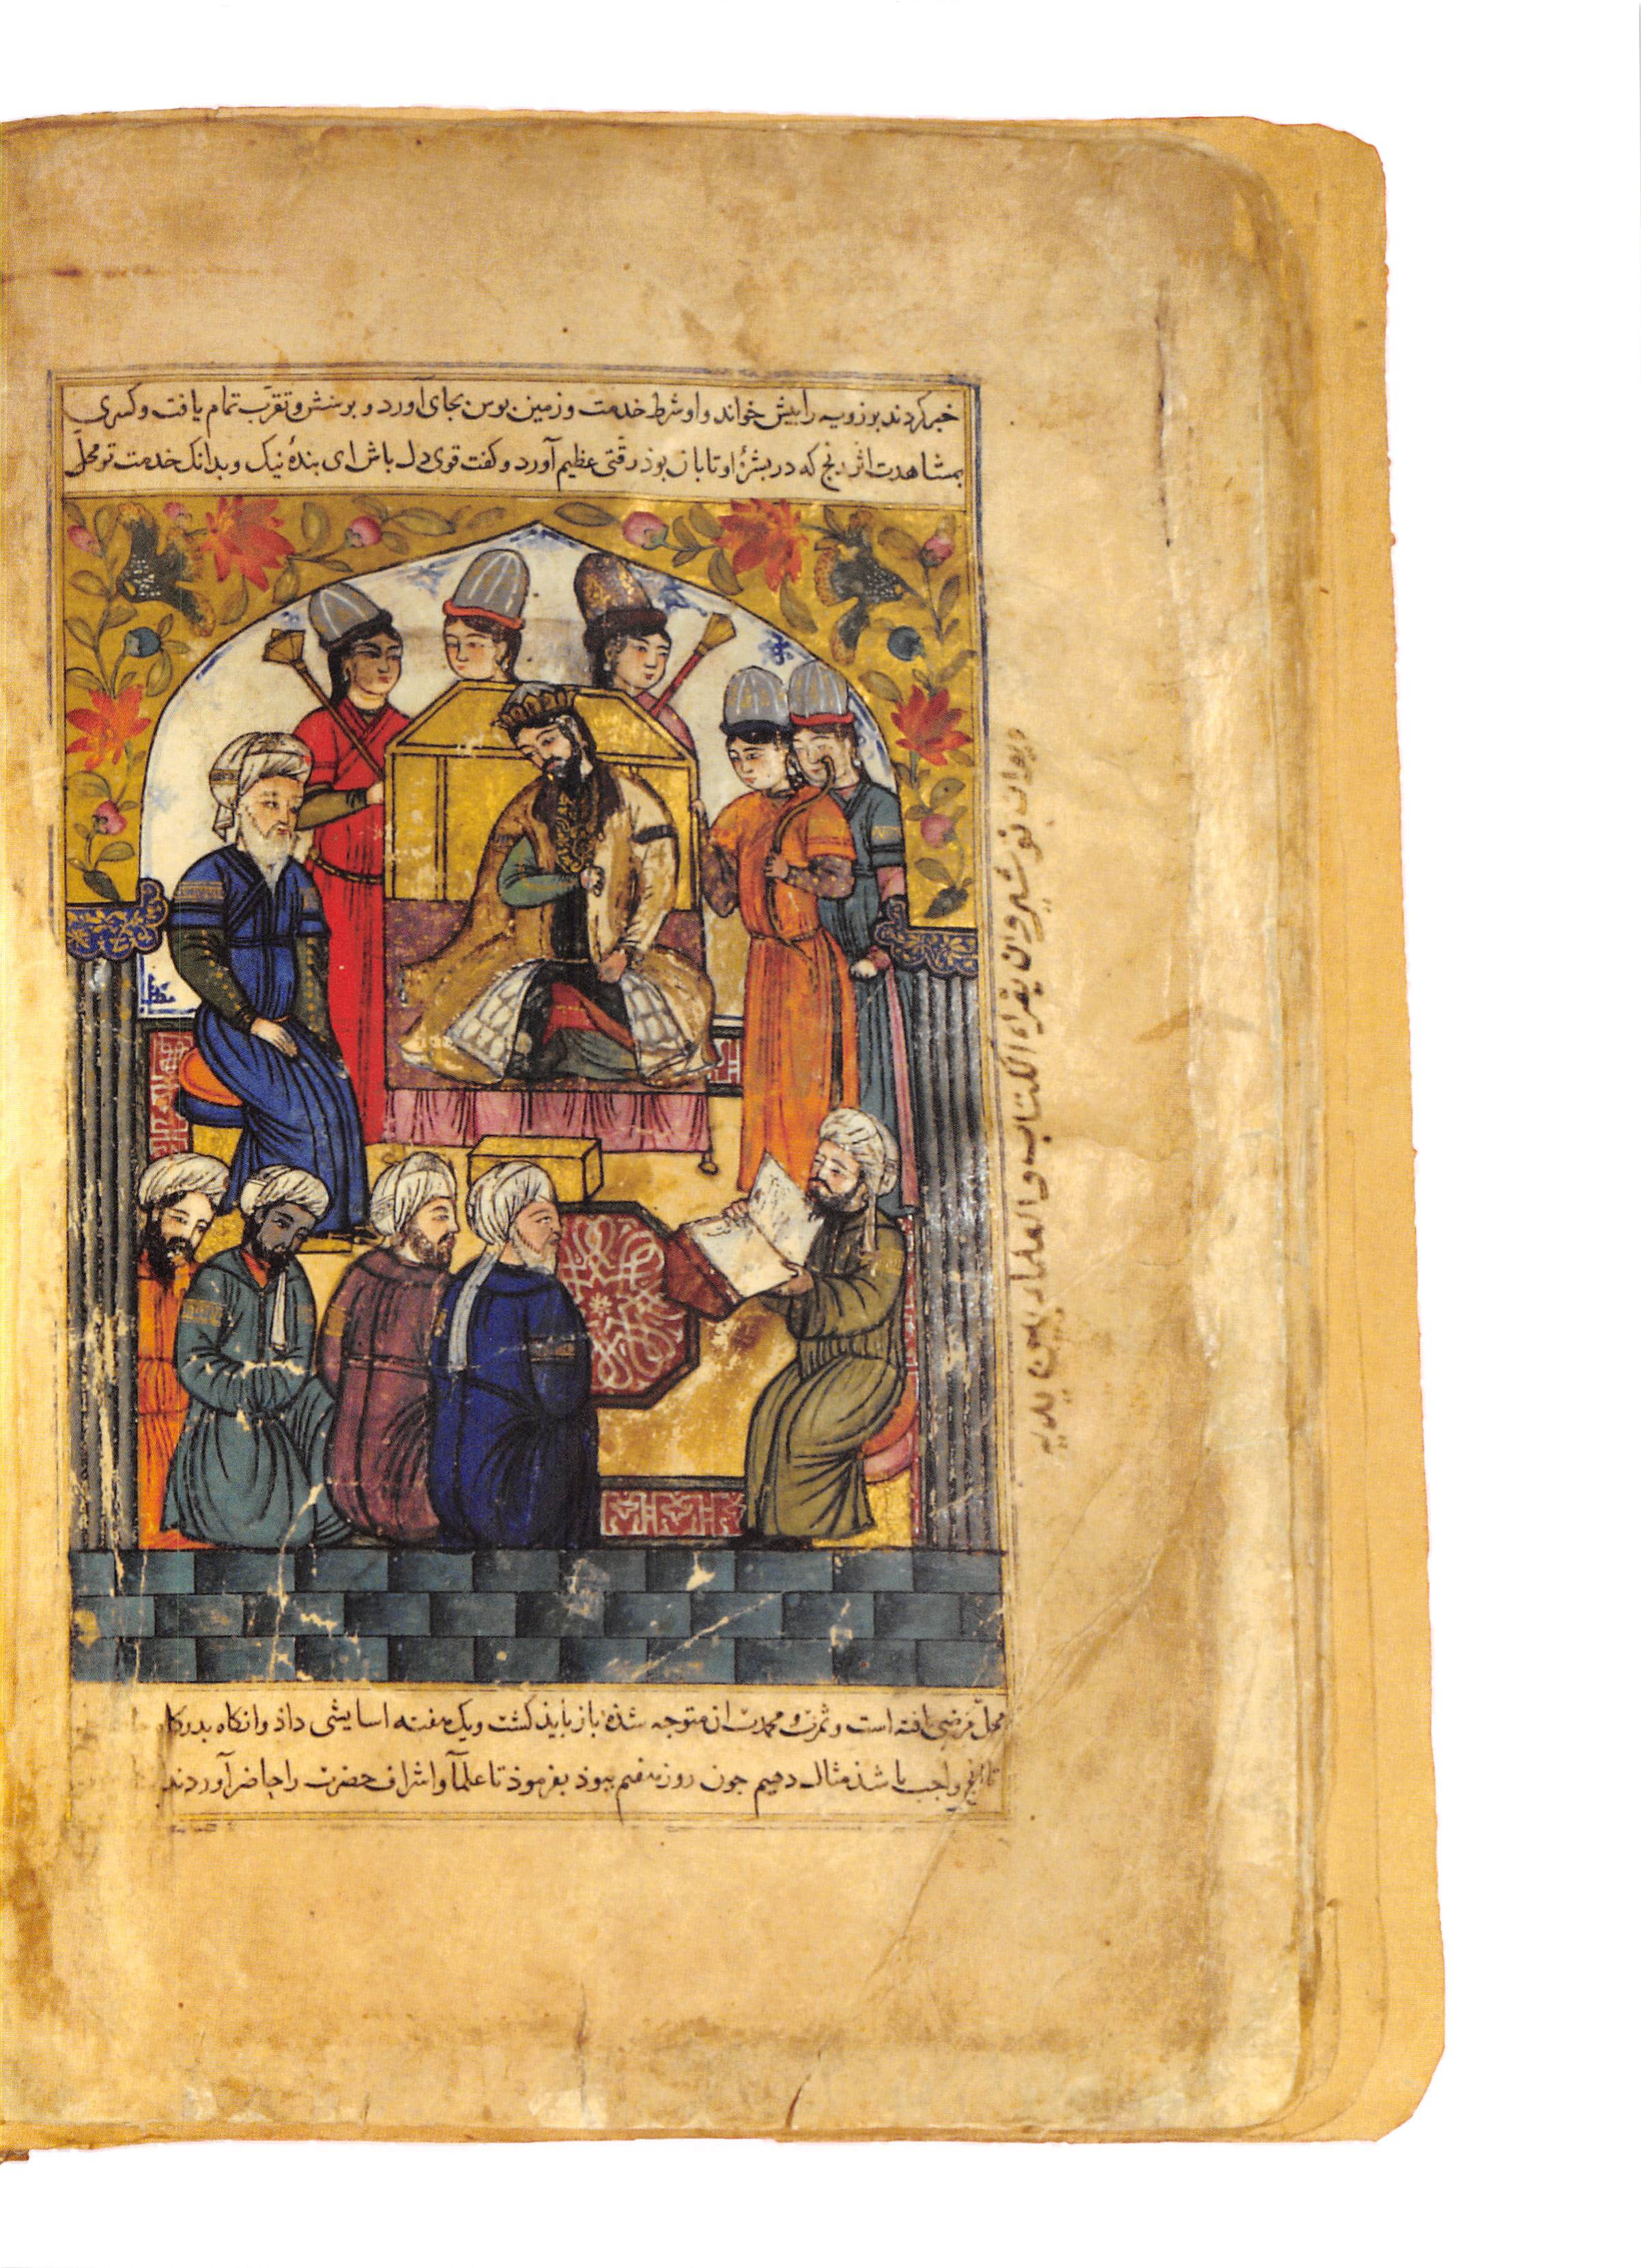 خبر کردند برزویه را پیش خواند و او شرط خدمت و زمین بوس بجای آورد و پرسش و تقرب تمام یافت و کسری
بمشاهدت اثر رنج که در بشرۀ او تابان بوذ رقتی عظیم آورد و کفت قوی دل باش ای بندۀ نیک و بدانک خدمت تو محل
محل مرضی یافته است و ثمرت و محمدت ان متوجه شذه باز بایذ کشت و یک هفته اسایشی داذ وانکاه بدرکا
تا انچ واجب باشذ مثال دهیم جون روز هفتم ببوذ بفرموذ تا علما و اشراف حضرت را حاضر آوردند
دیوان نوشیروان یقراء الکتاب والعلما بین یدیه